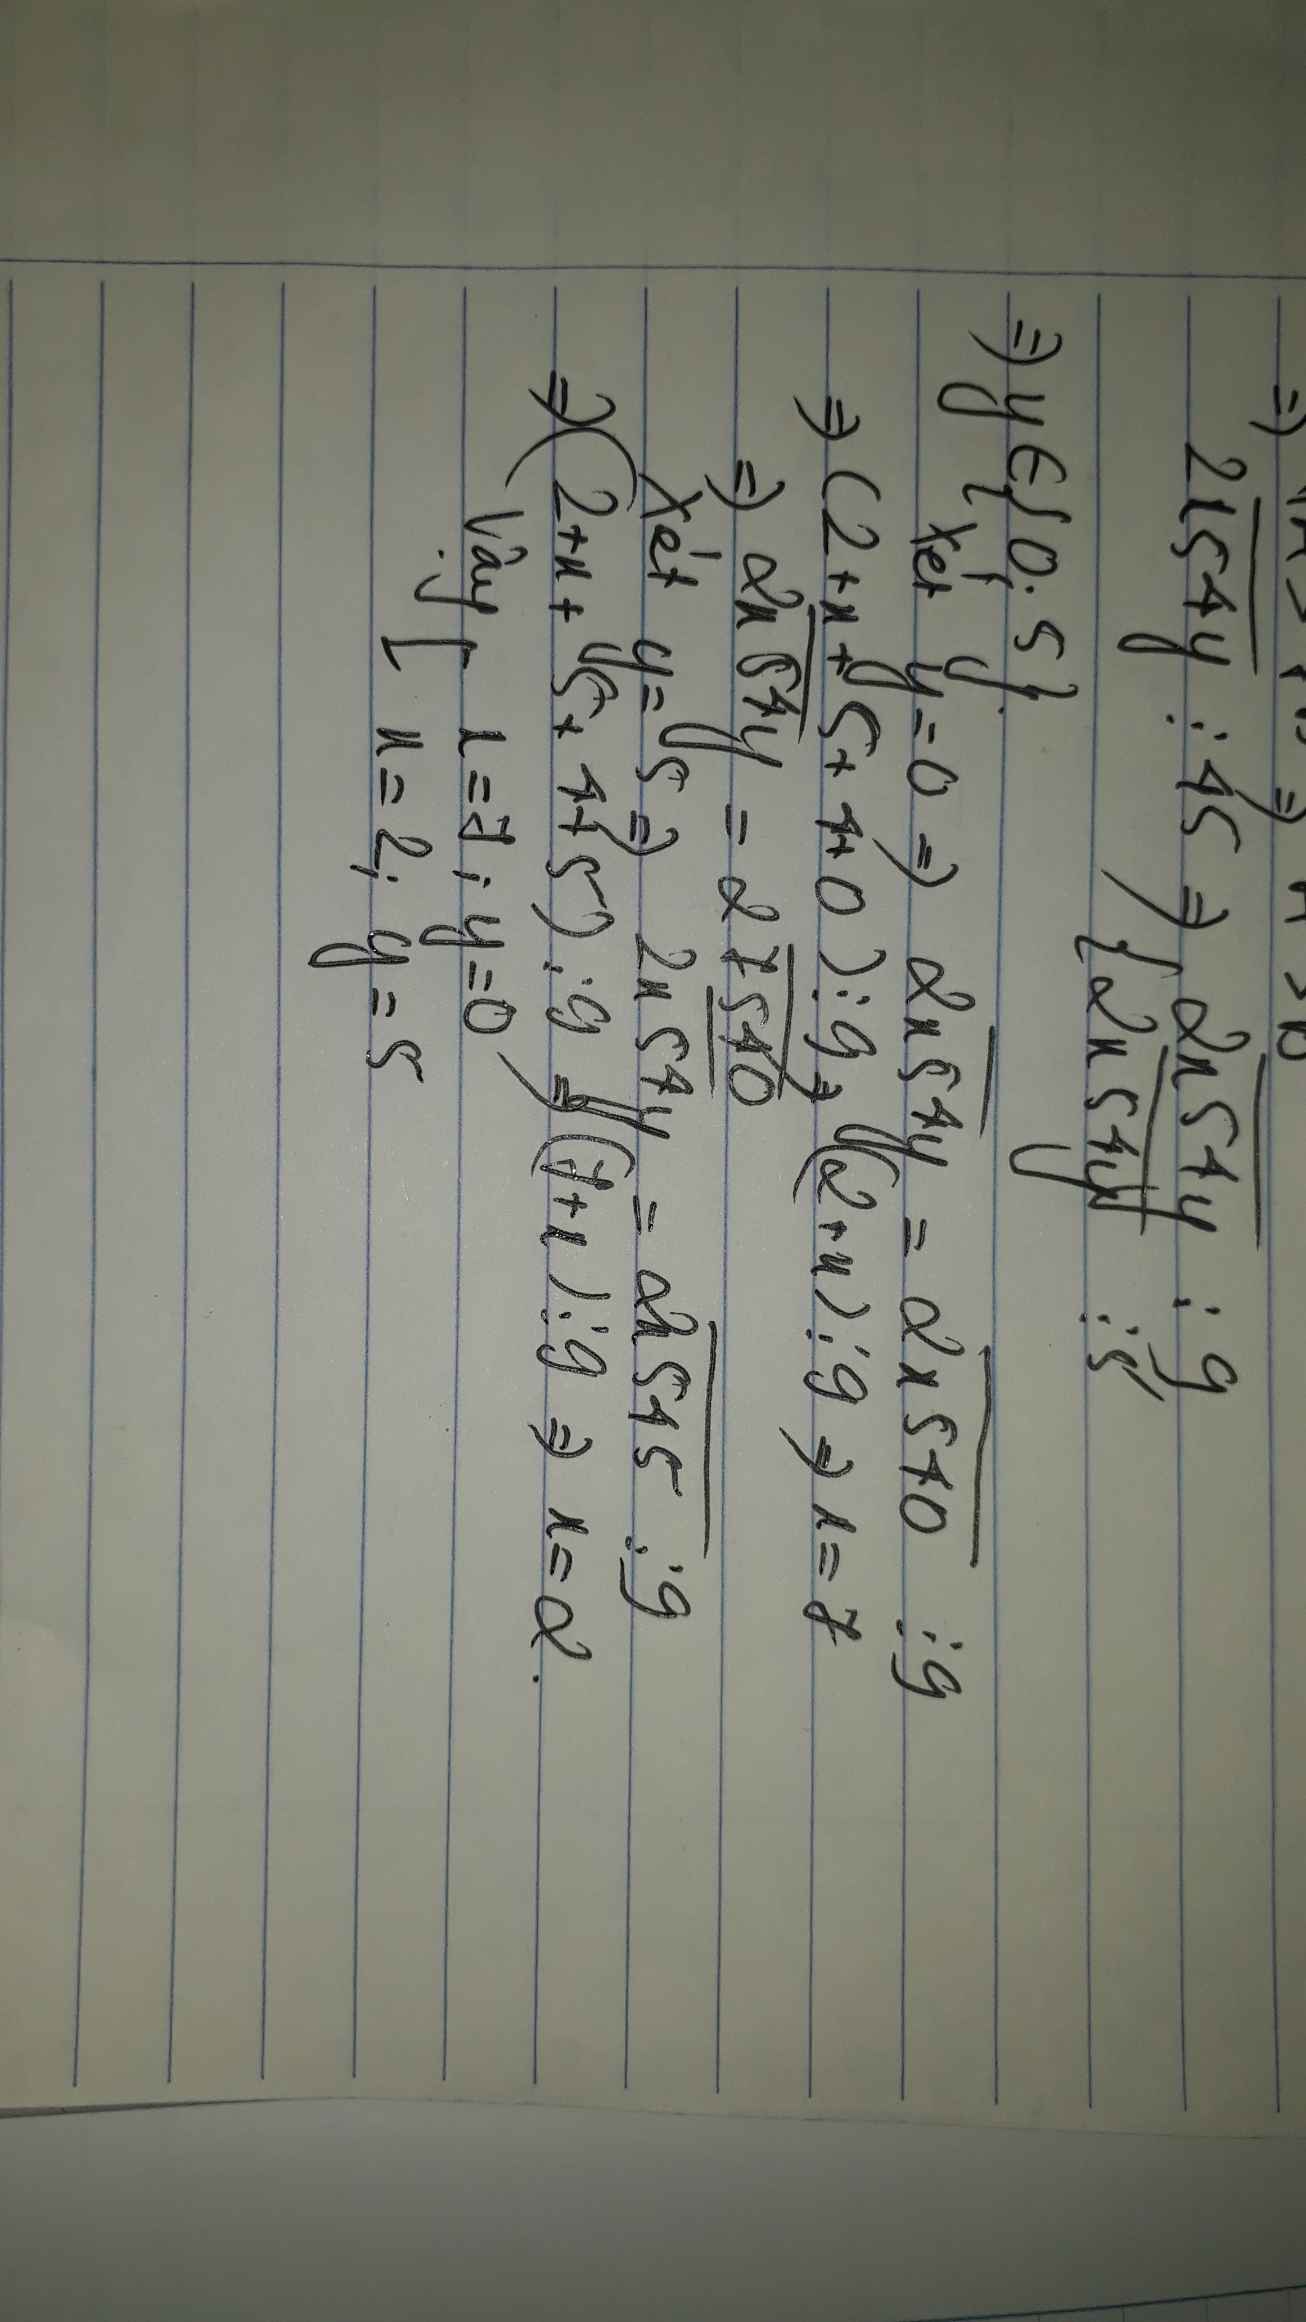 2x54y ⋮ 45 ⇒ { 2x54y ⋮ 9
2x54y ⋮ 5
⇒ y ∈ { 0; 5 }.
Xét y = 0 ⇒ 2x54y = 2x540 ⋮ 9
⇒ (2+x+5+4+0) ⋮ 9 ⇒ (2+x) ⋮ 9 ⇒ x = 7
⇒ 2x54y = 27540
Xét y = 5 ⇒ 2x54y = 2x545 ⋮ 9
⇒ (2+x+5+4+5) ⋮ 9 ⇒ (7+x) ⋮ 9 ⇒ x = 2.
Vậy [ x = 7; y = 0
x = 2; y = 5